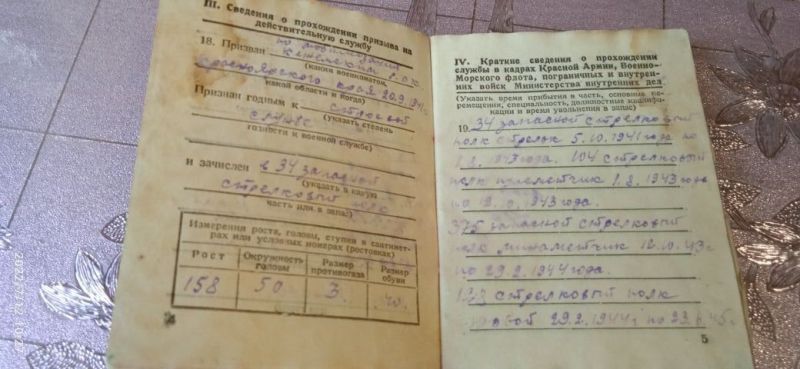 III. Сведения о прохождении призыва на
действительную службу
18. Призван по мобилизации
(каким военкоматом,
Красноярского края 20.9.1941
какой области и когда)
Признан годным к строевой
(указать степень
службе
годности к военной службе)
и зачислен в 34 запасной
(указать в какую
стрелковый полк
часть или в запас)
Измерения роста, головы, ступни в сантимет-
рах или условных номерах (ростовках)
Рост
Окружность головы
Размер противогаза
Размер обуви
158
50
3.
40.
4
IV. Краткие сведения о прохождении
службы в кадрах Красной Армии, Военно-
Морского флота, пограничных и внутрен-
них войск Министерства внутренних дел
(Указать время прибытия в часть, основные пе-
ремещения, специальность, должностные квалифи-
кации и время увольнения в запас)
19. 34 запасной стрелковый
полк стрелок 5.10.1941 года по
1.8.1943 года. 104 стрелковый
полк 1.8.1943 года
по 1943 года.
375 запасной стрелковый
полк минометчик 12.10.43 г
по 29.2.1944 года.
стрелковый полк
29.2.1944 г по 23.8.45.
5